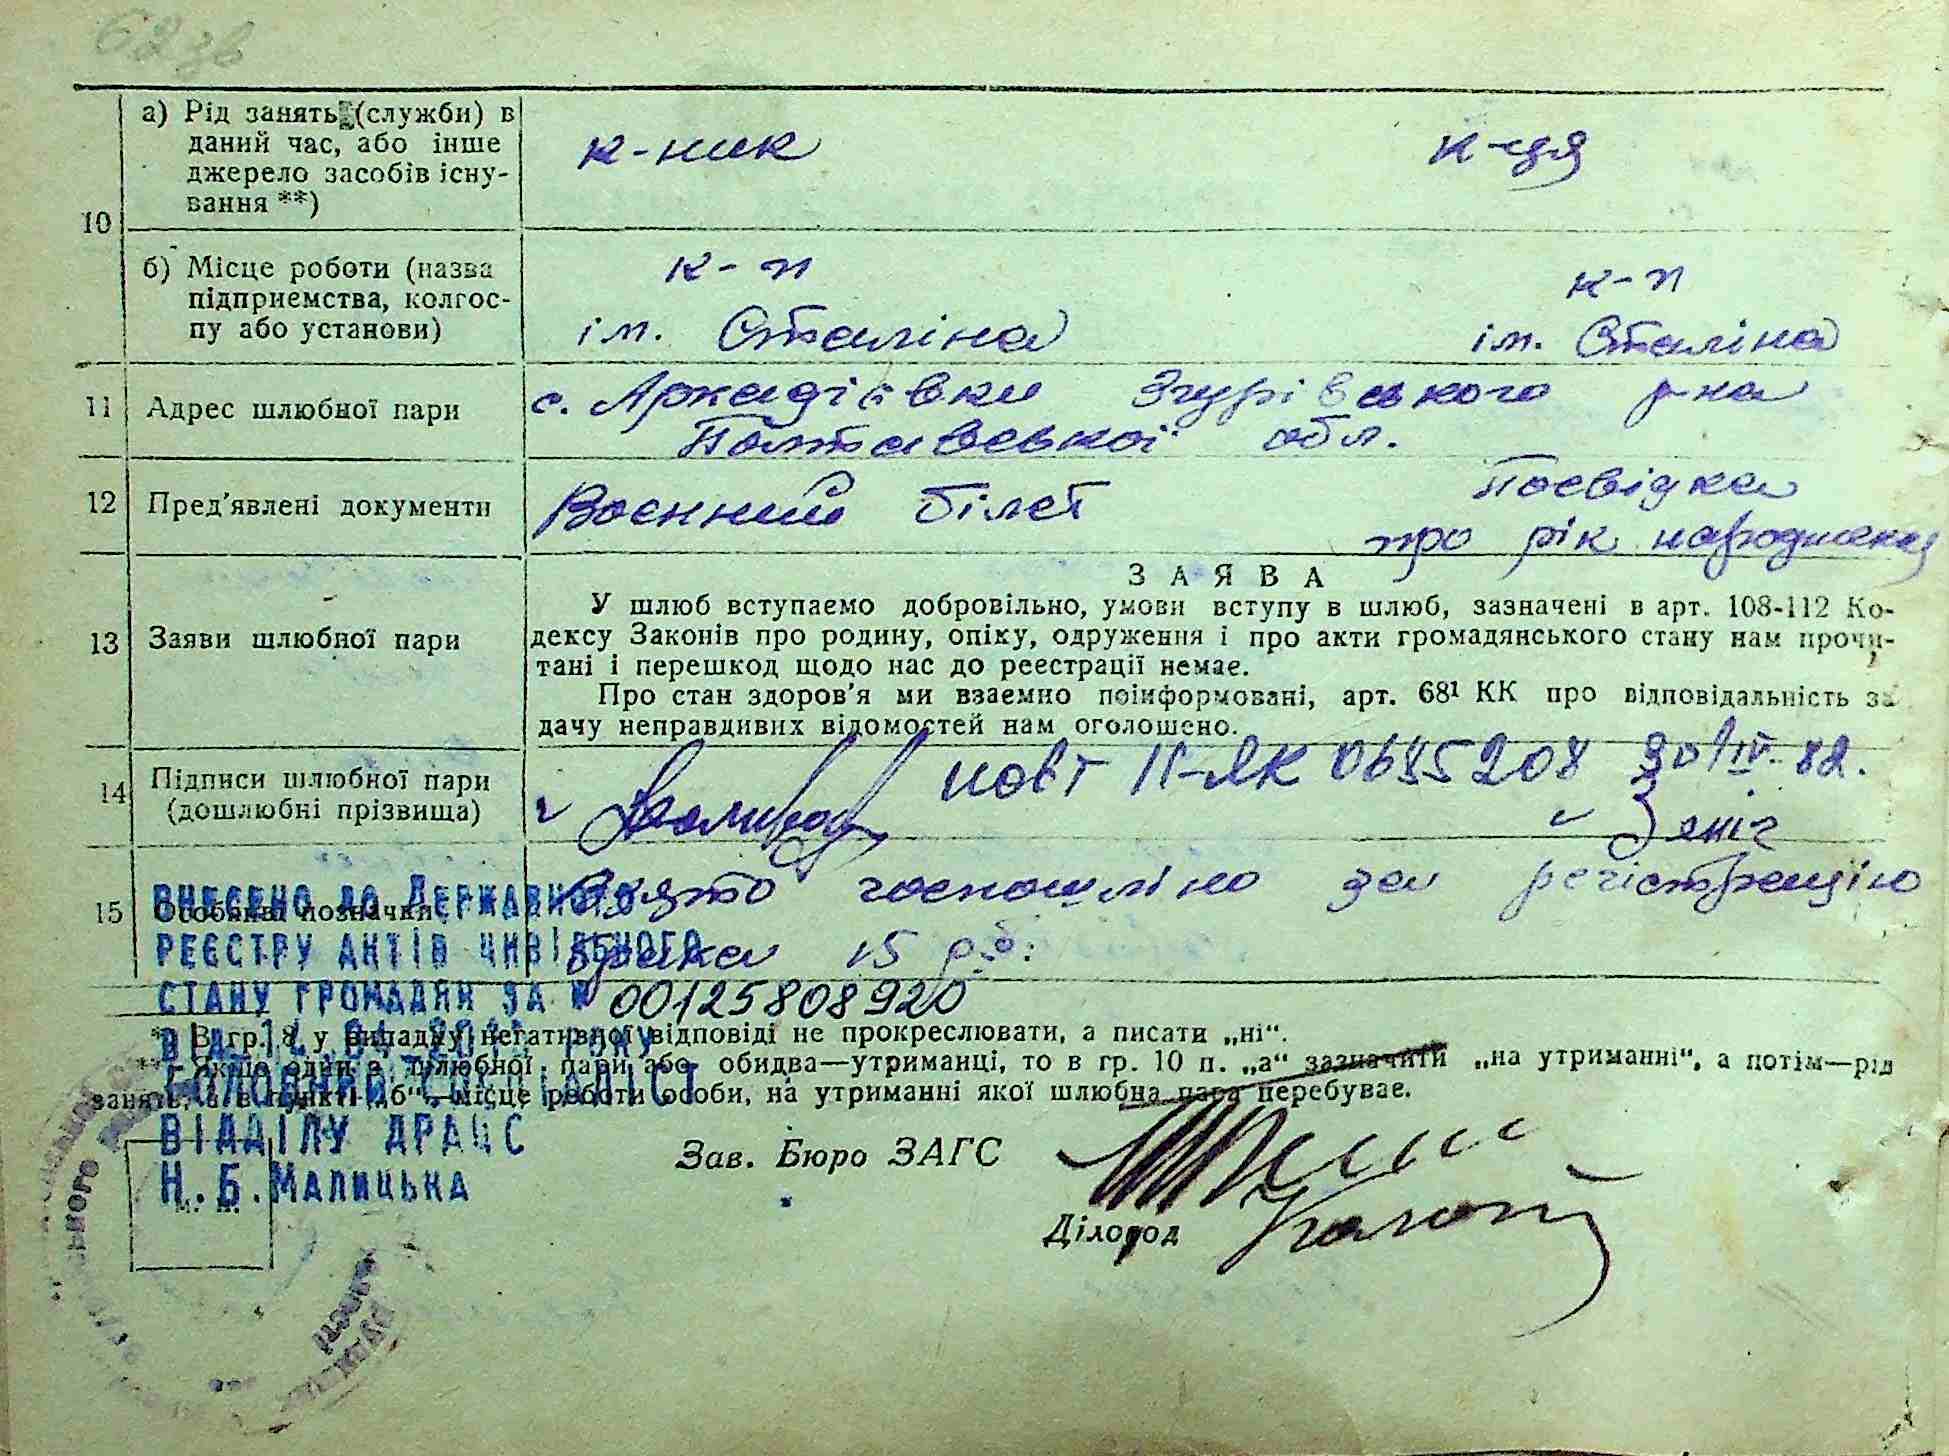 62зв
10
а) Рід занять (служби) в
даний час, або інше
джерело засобів існу-
вання **)
к-ник
к-ця
б) Місце роботи (назва
підприємства, колгос-
пу або установи)
к-п
ім. Сталіна
к-п
ім. Сталіна
11 Адрес шлюбної пари
с. Аркадіївки Згурівського р-на
Полтавської обл.
12 Пред'явлені документи
Воєнний білет
Посвідка
про рік народження
13 Заяви шлюбної пари
ЗАЯВА
У шлюб вступаємо добровільно, умови вступу в шлюб, зазначені в арт. 108-112 Ко-
дексу Законів про родину, опіку, одруження і про акти громадянського стану нам прочи-
тані і перешкод щодо нас до реєстрації немає.
Про стан здоров'я ми взаємно поінформовані, арт. 68¹ КК про відповідальність за
дачу неправдивих відомостей нам оголошено.
14 Підписи шлюбної пари
(дошлюбні прізвища)
повт ІІ-ЯК 0685208 30/IV-82.
Зеніг
15 Особливі позначки
Взято госпошліно за регістрацію
брака 15 р.б.
ВНЕСЕНО ДО ДЕРЖАВНОГО
РЕЄСТРУ АКТІВ ЦИВІЛЬНОГО
СТАНУ ГРОМАДЯН ЗА № 00125808920
РОКУ
ГОЛОВНИЙ СПЕЦІАЛІСТ
ВІДДІЛУ ДРАЦС
Н.Б.МАЛИЦЬКА
* В гр. 8 у випадку негативної відповіді не прокреслювати, а писати „ні“.
** Якщо один з шлюбної пари або обидва—утриманці, то в гр. 10 п. „а“ зазначити „на утриманні“, а потім—рід
занять, а в пункті „б“—місце роботи особи, на утриманні якої шлюбна пара перебуває.
Зав. Бюро ЗАГС
Діловод
М. П.